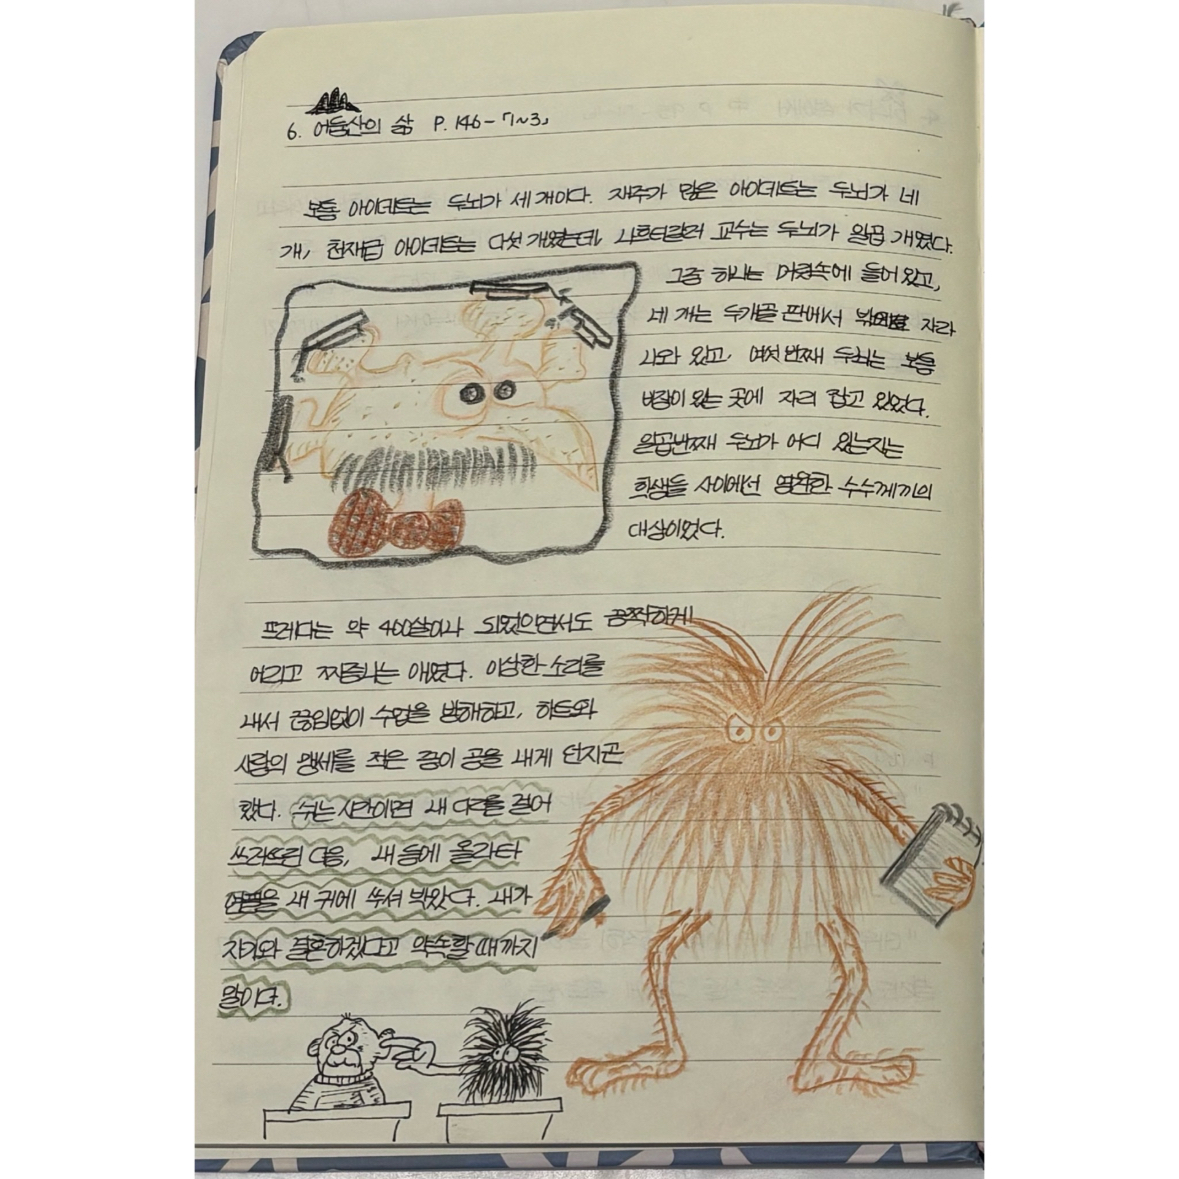 6. 어둠산의 삶 P.146-7~3」
보통 아이데트는 두뇌가 세 개이다. 재주가 많은 아이데트는 두뇌가 네
개, 천재급 아이데트는 다섯 개였는데, 나흐티갈러 교수는 두뇌가 일곱 개였다.
그중 하나는 머릿속에 들어 있고,
네 개는 두개골 판에서 밖으로 자라
나와 있고, 여섯 번째 두뇌는 보통
비장이 있는 곳에 자리 잡고 있었다.
일곱번째 두뇌가 어디 있는지는
학생들 사이에선 영원한 수수께끼의
대상이었다.
프레다는 약 400살이나 되었으면서도 끔찍하게
어리고 짜증나는 애였다. 이상한 소리를
내서 끊임없이 수업을 방해하고, 하트와
사랑의 맹세를 적은 종이 공을 내게 던지곤
했다. 쉬는 시간이면 내 다리를 걸어
쓰러뜨린 다음, 내 등에 올라타
연필을 내 귀에 쑤셔 박았다. 내가
자기와 결혼하겠다고 약속할 때까지
말이다.